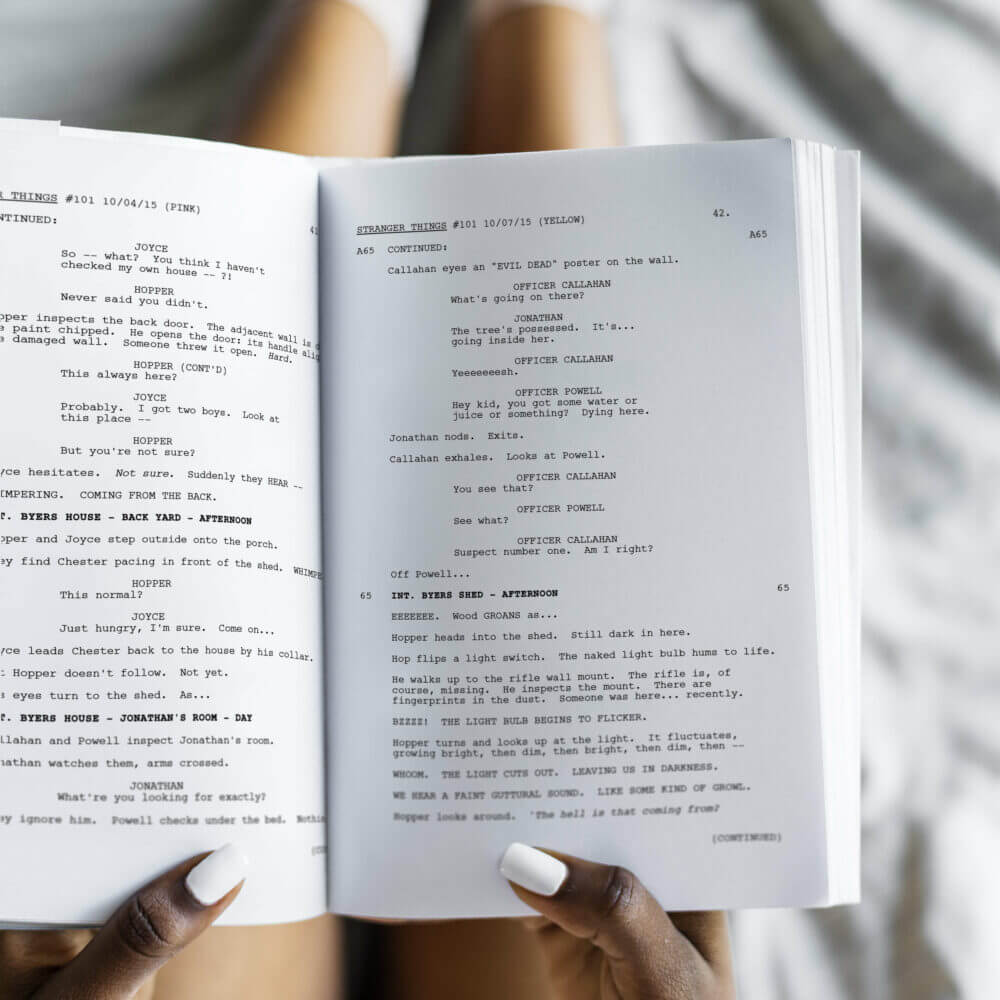 THINGS #101 10/04/15 (PINK)
41
JOYCE
So -- what? You think I haven't
checked my own house -- ?!
HOPPER
Never said you didn't.
inspects the back door. The adjacent wall is
paint chipped. He opens the door: its handle
damaged wall. Someone threw it open. Hard.
HOPPER (CONT'D)
This always here?
JOYCE
Probably. I got two boys. Look at
this place --
HOPPER
But you're not sure?
hesitates. Not sure. Suddenly they HEAR --
COMING FROM THE BACK.
BYERS HOUSE - BACK YARD - AFTERNOON
and Joyce step outside onto the porch.
find Chester pacing in front of the shed.
HOPPER
This normal?
JOYCE
Just hungry, I'm sure. Come on...
leads Chester back to the house by his collar.
Hopper doesn't follow. Not yet.
eyes turn to the shed. As...
BYERS HOUSE - JONATHAN'S ROOM - DAY
and Powell inspect Jonathan's room.
watches them, arms crossed.
JONATHAN
What're you looking for exactly?
ignore him. Powell checks under the bed.
STRANGER THINGS #101 10/07/15 (YELLOW) 42.
A65 CONTINUED: A65
Callahan eyes an "EVIL DEAD" poster on the wall.
OFFICER CALLAHAN
What's going on there?
JONATHAN
The tree's possessed. It's...
going inside her.
OFFICER CALLAHAN
Yeeeeeesh.
OFFICER POWELL
Hey kid, you got some water or
juice or something? Dying here.
Jonathan nods. Exits.
Callahan exhales. Looks at Powell.
OFFICER CALLAHAN
You see that?
OFFICER POWELL
See what?
OFFICER CALLAHAN
Suspect number one. Am I right?
Off Powell...
65 INT. BYERS SHED - AFTERNOON 65
EEEEEEE. Wood GROANS as...
Hopper heads into the shed. Still dark in here.
Hop flips a light switch. The naked light bulb hums to life.
He walks up to the rifle wall mount. The rifle is, of
course, missing. He inspects the mount. There are
fingerprints in the dust. Someone was here... recently.
BZZZZ! THE LIGHT BULB BEGINS TO FLICKER.
Hopper turns and looks up at the light. It fluctuates,
growing bright, then dim, then bright, then dim, then --
WHOOM. THE LIGHT CUTS OUT. LEAVING US IN DARKNESS.
WE HEAR A FAINT GUTTURAL SOUND. LIKE SOME KIND OF GROWL.
Hopper looks around. 'The hell is that coming from?
(CONTINUED)